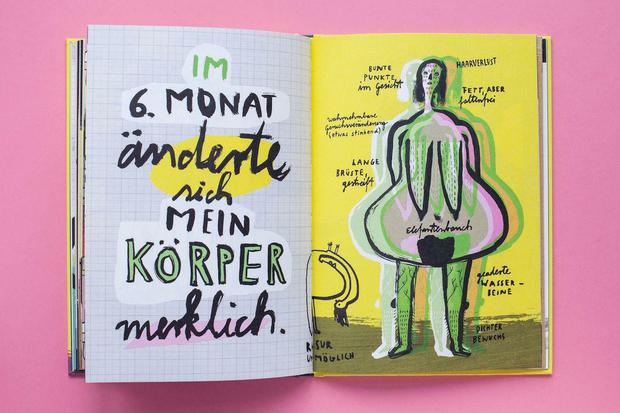 IM
6. MONAT
änderte
sich
MEIN
KÖRPER
merklich.
BUNTE
PUNKTE
im Gesicht
HAARVERLUST
FETT, ABER
faltenfrei
wahrnehmbare
Geruchsveränderung
(etwas stinkend)
LANGE
BRÜSTE,
gestreift
Elefantenbauch
geaderte
WASSER-
BEINE
DICHTER
BEWUCHS
SUR
MÖGLICH